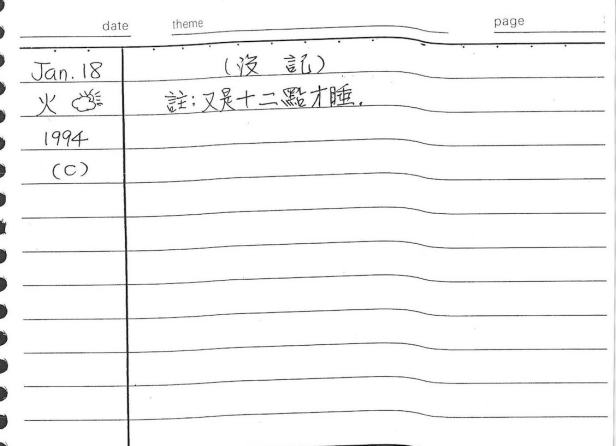 date theme page
Jan. 18 (沒 記)
火 註:又是十二點才睡.
1994
(C)